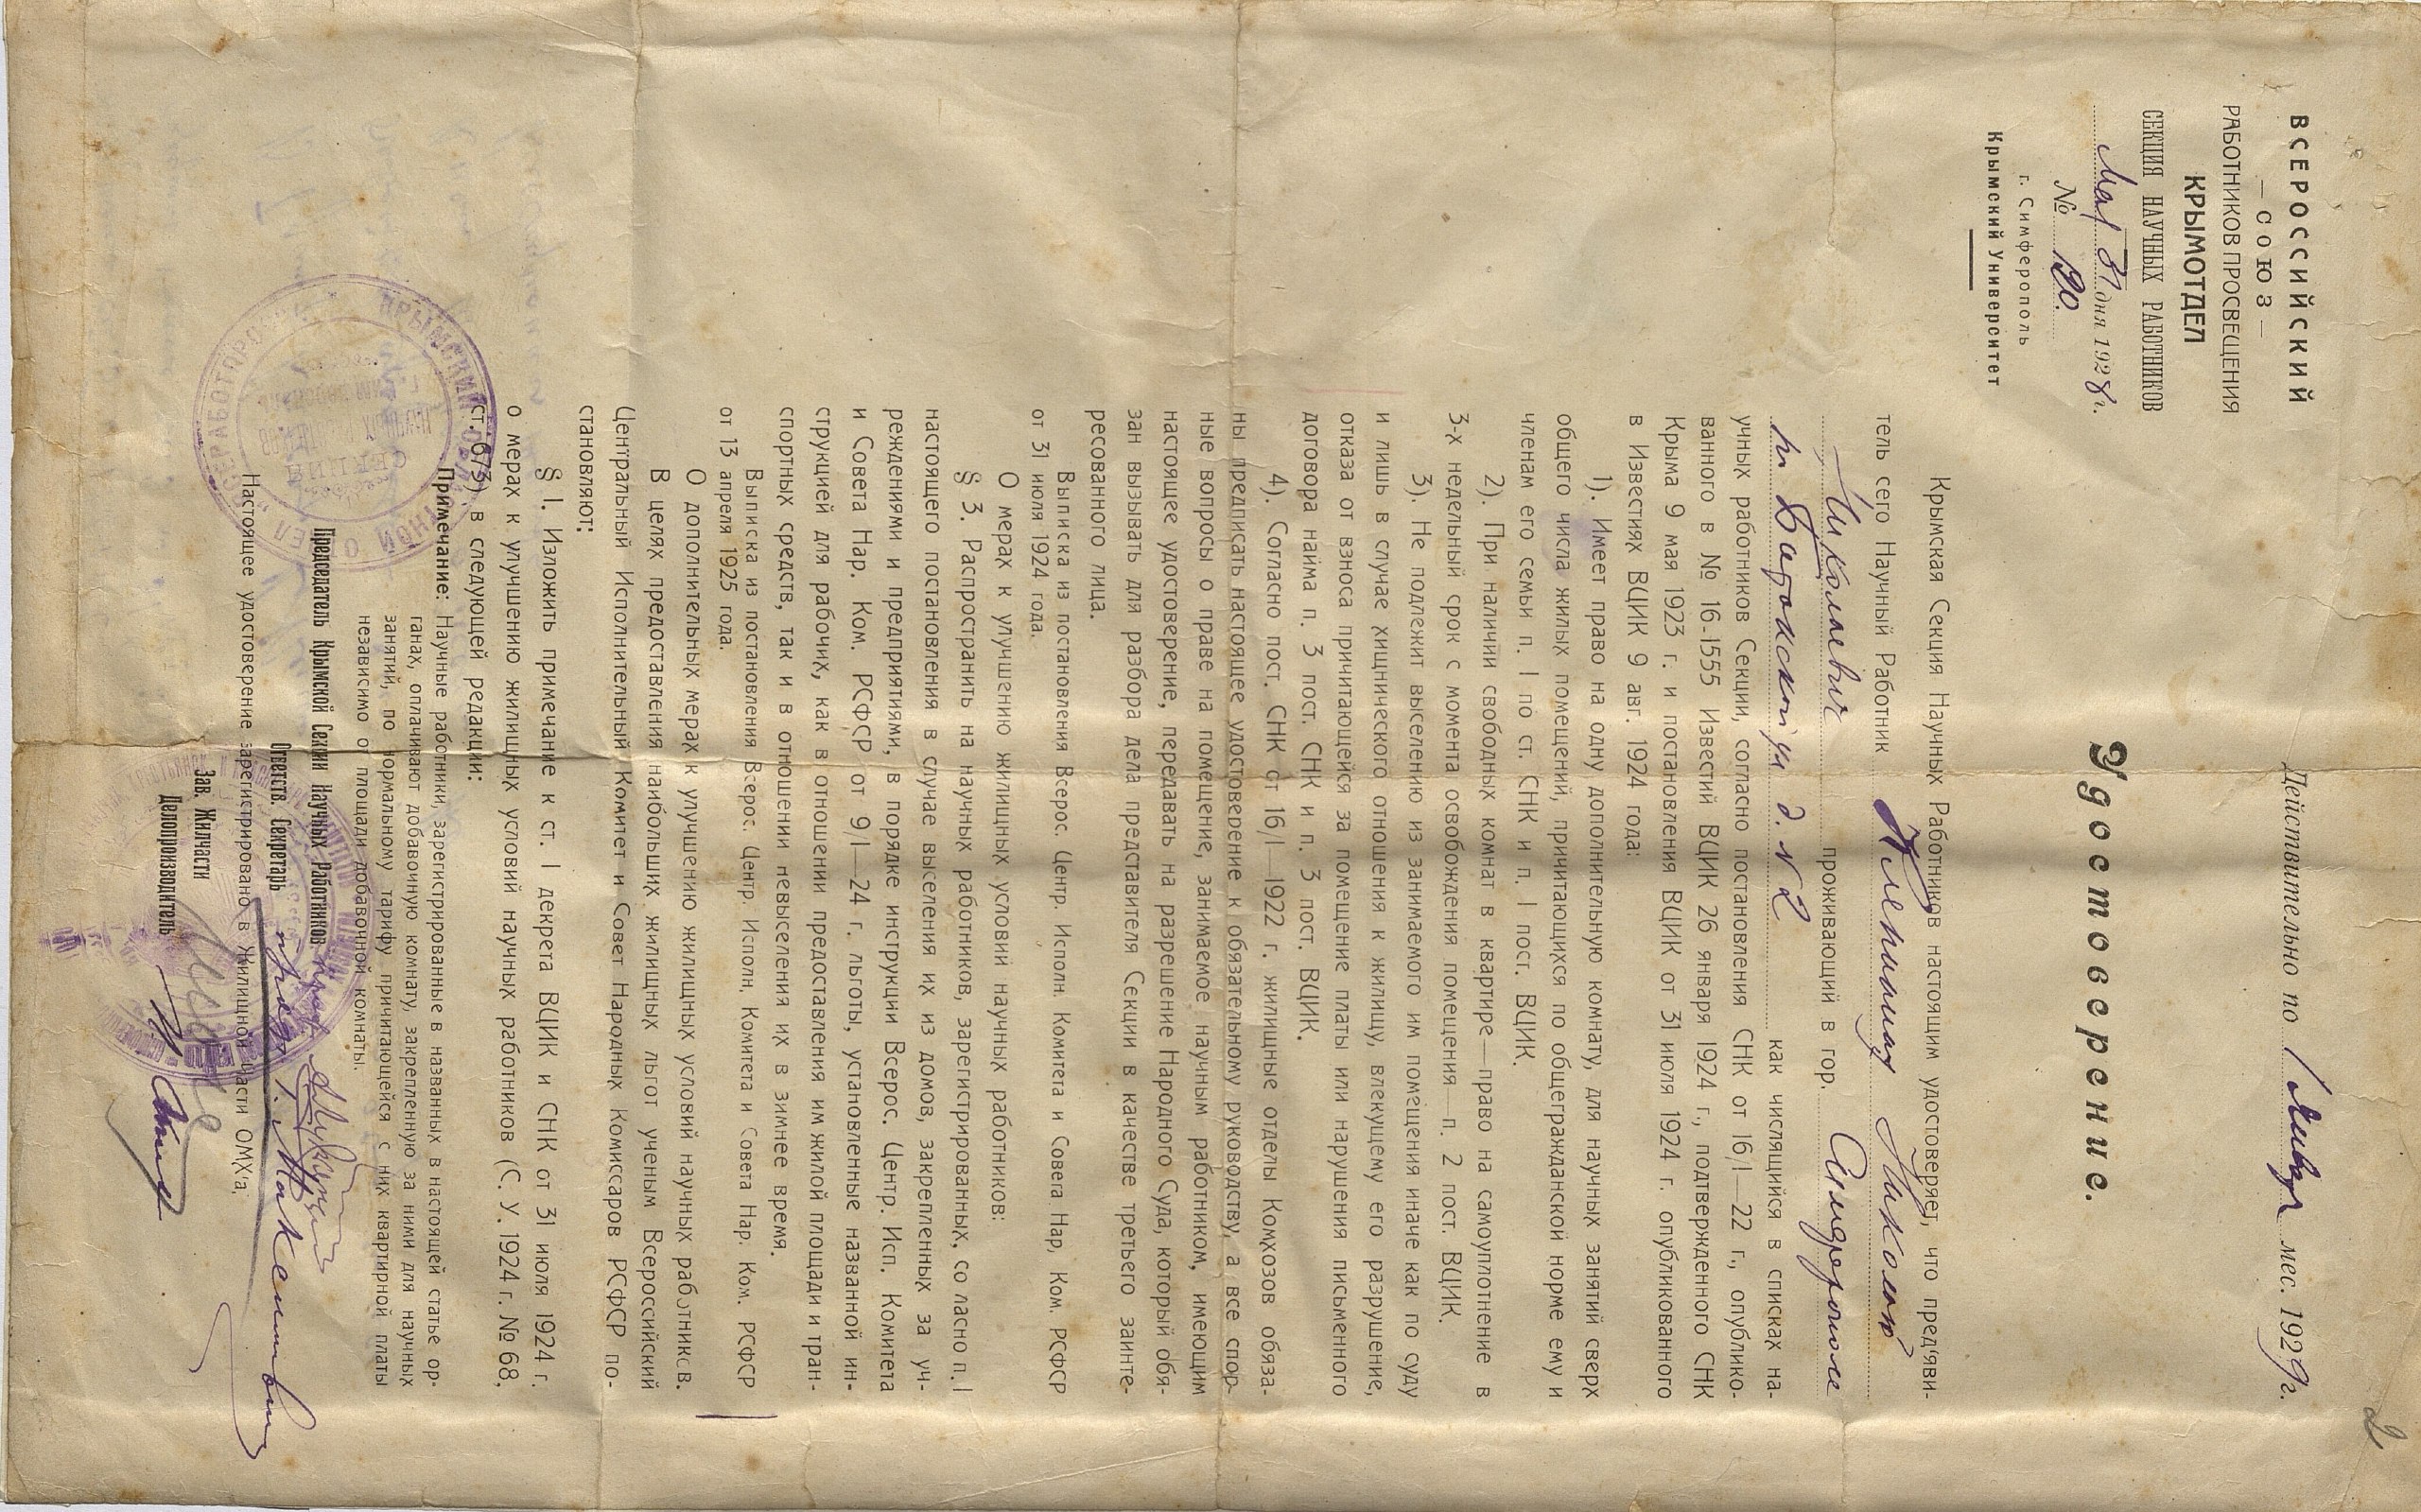 2
ВСЕРОССИЙСКИЙ
— СОЮЗ —
РАБОТНИКОВ ПРОСВЕЩЕНИЯ
КРЫМОТДЕЛ
СЕКЦИЯ НАУЧНЫХ РАБОТНИКОВ
дня 1928 г.
№ 120.
г. Симферополь
Крымский Университет
Действительно по 1 Января мес. 1929 г.
Удостоверение.
Крымская Секция Научных Работников настоящим удостоверяет, что пред'яви-
тель сего Научный Работник Клепинин Николай
Николаевич проживающий в гор. Симферополе
д. № 2 как числящийся в списках на-
учных работников Секции, согласно постановления СНК от 16/I—22 г., опублико-
ванного в № 16-1555 Известий ВЦИК 26 января 1924 г., подтвержденного СНК
Крыма 9 мая 1923 г. и постановления ВЦИК от 31 июля 1924 г. опубликованного
в Известиях ВЦИК 9 авг. 1924 года:
1). Имеет право на одну дополнительную комнату, для научных занятий сверх
общего числа жилых помещений, причитающихся по общегражданской норме ему и
членам его семьи п. I по ст. СНК и п. I пост. ВЦИК.
2). При наличии свободных комнат в квартире—право на самоуплотнение в
3-х недельный срок с момента освобождения помещения—п. 2 пост. ВЦИК.
3). Не подлежит выселению из занимаемого им помещения иначе как по суду
и лишь в случае хищнического отношения к жилищу, влекущему его разрушение,
отказа от взноса причитающейся за помещение платы или нарушения письменного
договора найма п. 3 пост. СНК и п. 3 пост. ВЦИК.
4). Согласно пост. СНК от 16/I—1922 г. жилищные отделы Комхозов обяза-
ны предписать настоящее удостоверение к обязательному руководству, а все спор-
ные вопросы о праве на помещение, занимаемое научным работником, имеющим
настоящее удостоверение, передавать на разрешение Народного Суда, который обя-
зан вызывать для разбора дела представителя Секции в качестве третьего заинте-
ресованного лица.
Выписка из постановления Всерос. Центр. Исполн. Комитета и Совета Нар. Ком. РСФСР
от 31 июля 1924 года.
О мерах к улучшению жилищных условий научных работников:
§ 3. Распространить на научных работников, зарегистрированных, со ласно п. I
настоящего постановления в случае выселения их из домов, закрепленных за уч-
реждениями и предприятиями, в порядке инструкции Всерос. Центр. Исп. Комитета
и Совета Нар. Ком. РСФСР от 9/I—24 г. льготы, установленные названной ин-
струкцией для рабочих, как в отношении предоставления им жилой площади и тран-
спортных средств, так и в отношении невыселения их в зимнее время.
Выписка из постановления Всерос. Центр. Исполн. Комитета и Совета Нар. Ком. РСФСР
от 13 апреля 1925 года.
О дополнительных мерах к улучшению жилищных условий научных работников.
В целях предоставления наибольших жилищных льгот ученым Всероссийский
Центральный Исполнительный Комитет и Совет Народных Комиссаров РСФСР по-
становляют:
§ I. Изложить примечание к ст. I декрета ВЦИК и СНК от 31 июля 1924 г.
о мерах к улучшению жилищных условий научных работников (С. У. 1924 г. № 68,
ст. 673) в следующей редакции:
Примечание: Научные работники, зарегистрированные в названных в настоящей статье ор-
ганах, оплачивают добавочную комнату, закрепленную за ними для научных
занятий, по нормальному тарифу причитающейся с них квартирной платы
независимо от площади добавочной комнаты.
Председатель Крымской Секции Научных Работников проф.
Ответств. Секретарь
Настоящее удостоверение зарегистрировано в Жилищной Части ОМХ'а.
Зав. Жилчасти
Делопроизводитель